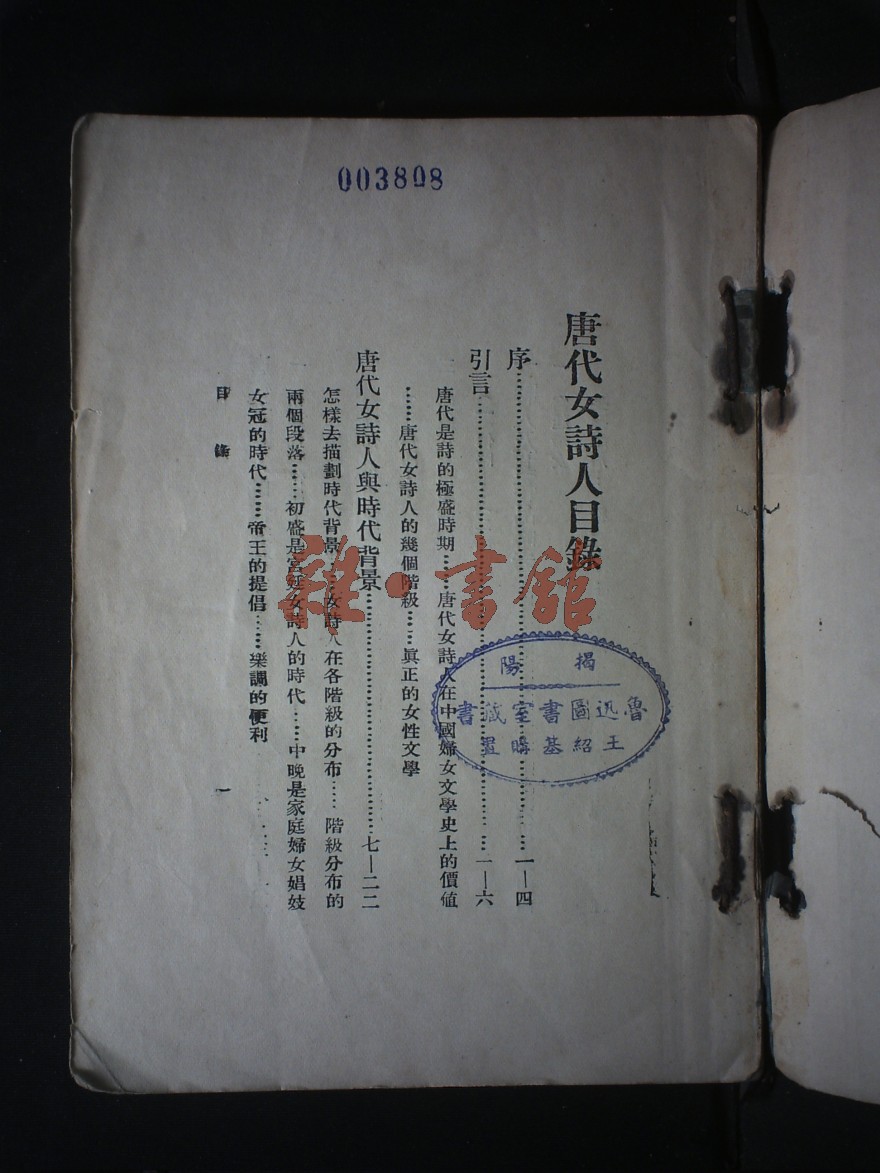 003808
唐代女詩人目錄
序……………………………………一—四
引言……………………………………一—六
唐代是詩的極盛時期……唐代女詩人在中國婦女文學史上的價值
……唐代女詩人的幾個階級……眞正的女性文學
唐代女詩人與時代背景……………………七—二二
怎樣去描劃時代背景……女詩人在各階級的分布……階級分布的
兩個段落……初盛是宮廷女詩人的時代……中晚是家庭婦女娼妓
女冠的時代……帝王的提倡……樂調的便利
目錄 一
雜·書館
揭陽
魯迅圖書室藏書
王紹基購置